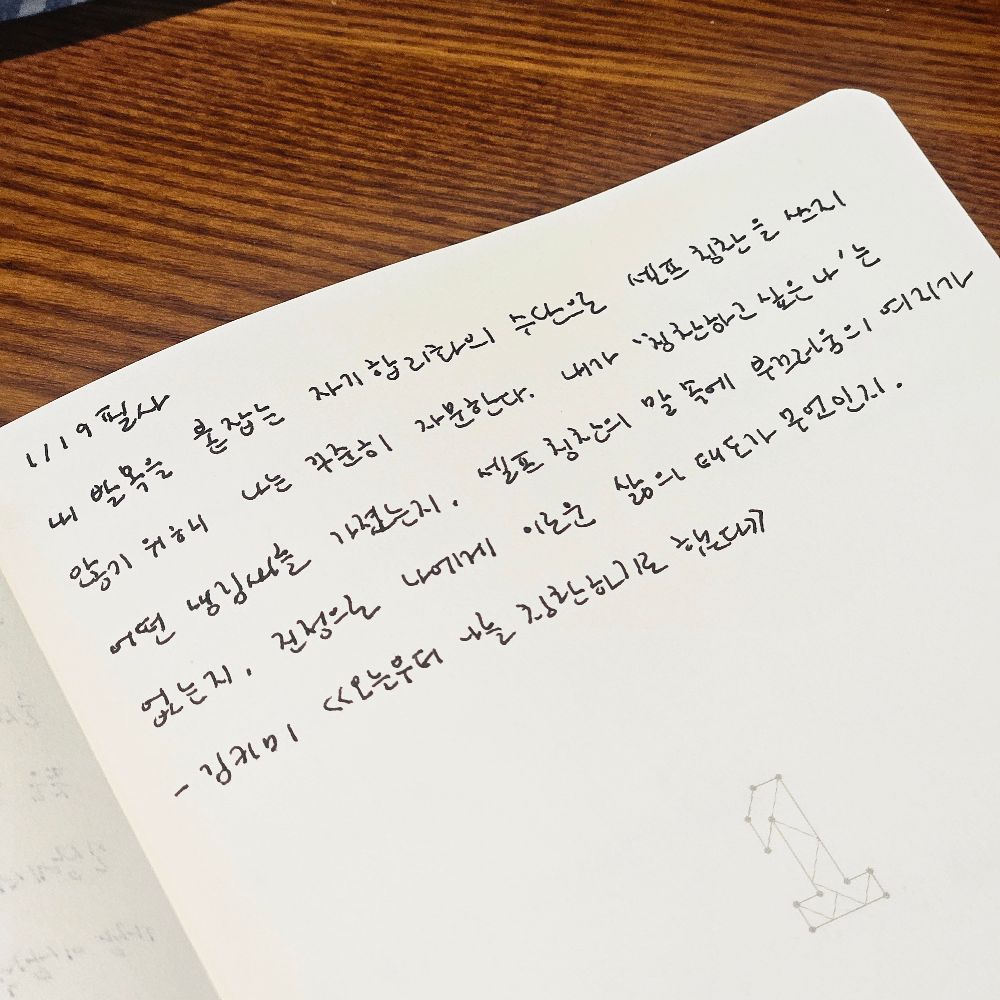 1/19 필사
내 발목을 붙잡는 자기합리화의 수단으로 셀프 칭찬을 쓰지
않기 위해서 나는 꾸준히 자문한다. 내가 '칭찬하고 싶은 나'는
어떤 생김새를 가졌는지. 셀프 칭찬의 말 속에 부끄러움의 여지가
없는지. 진정으로 나에게 이로운 삶의 태도가 무언인지.
- 김키미 <<오늘부터 나를 칭찬하기로 했다>>
1